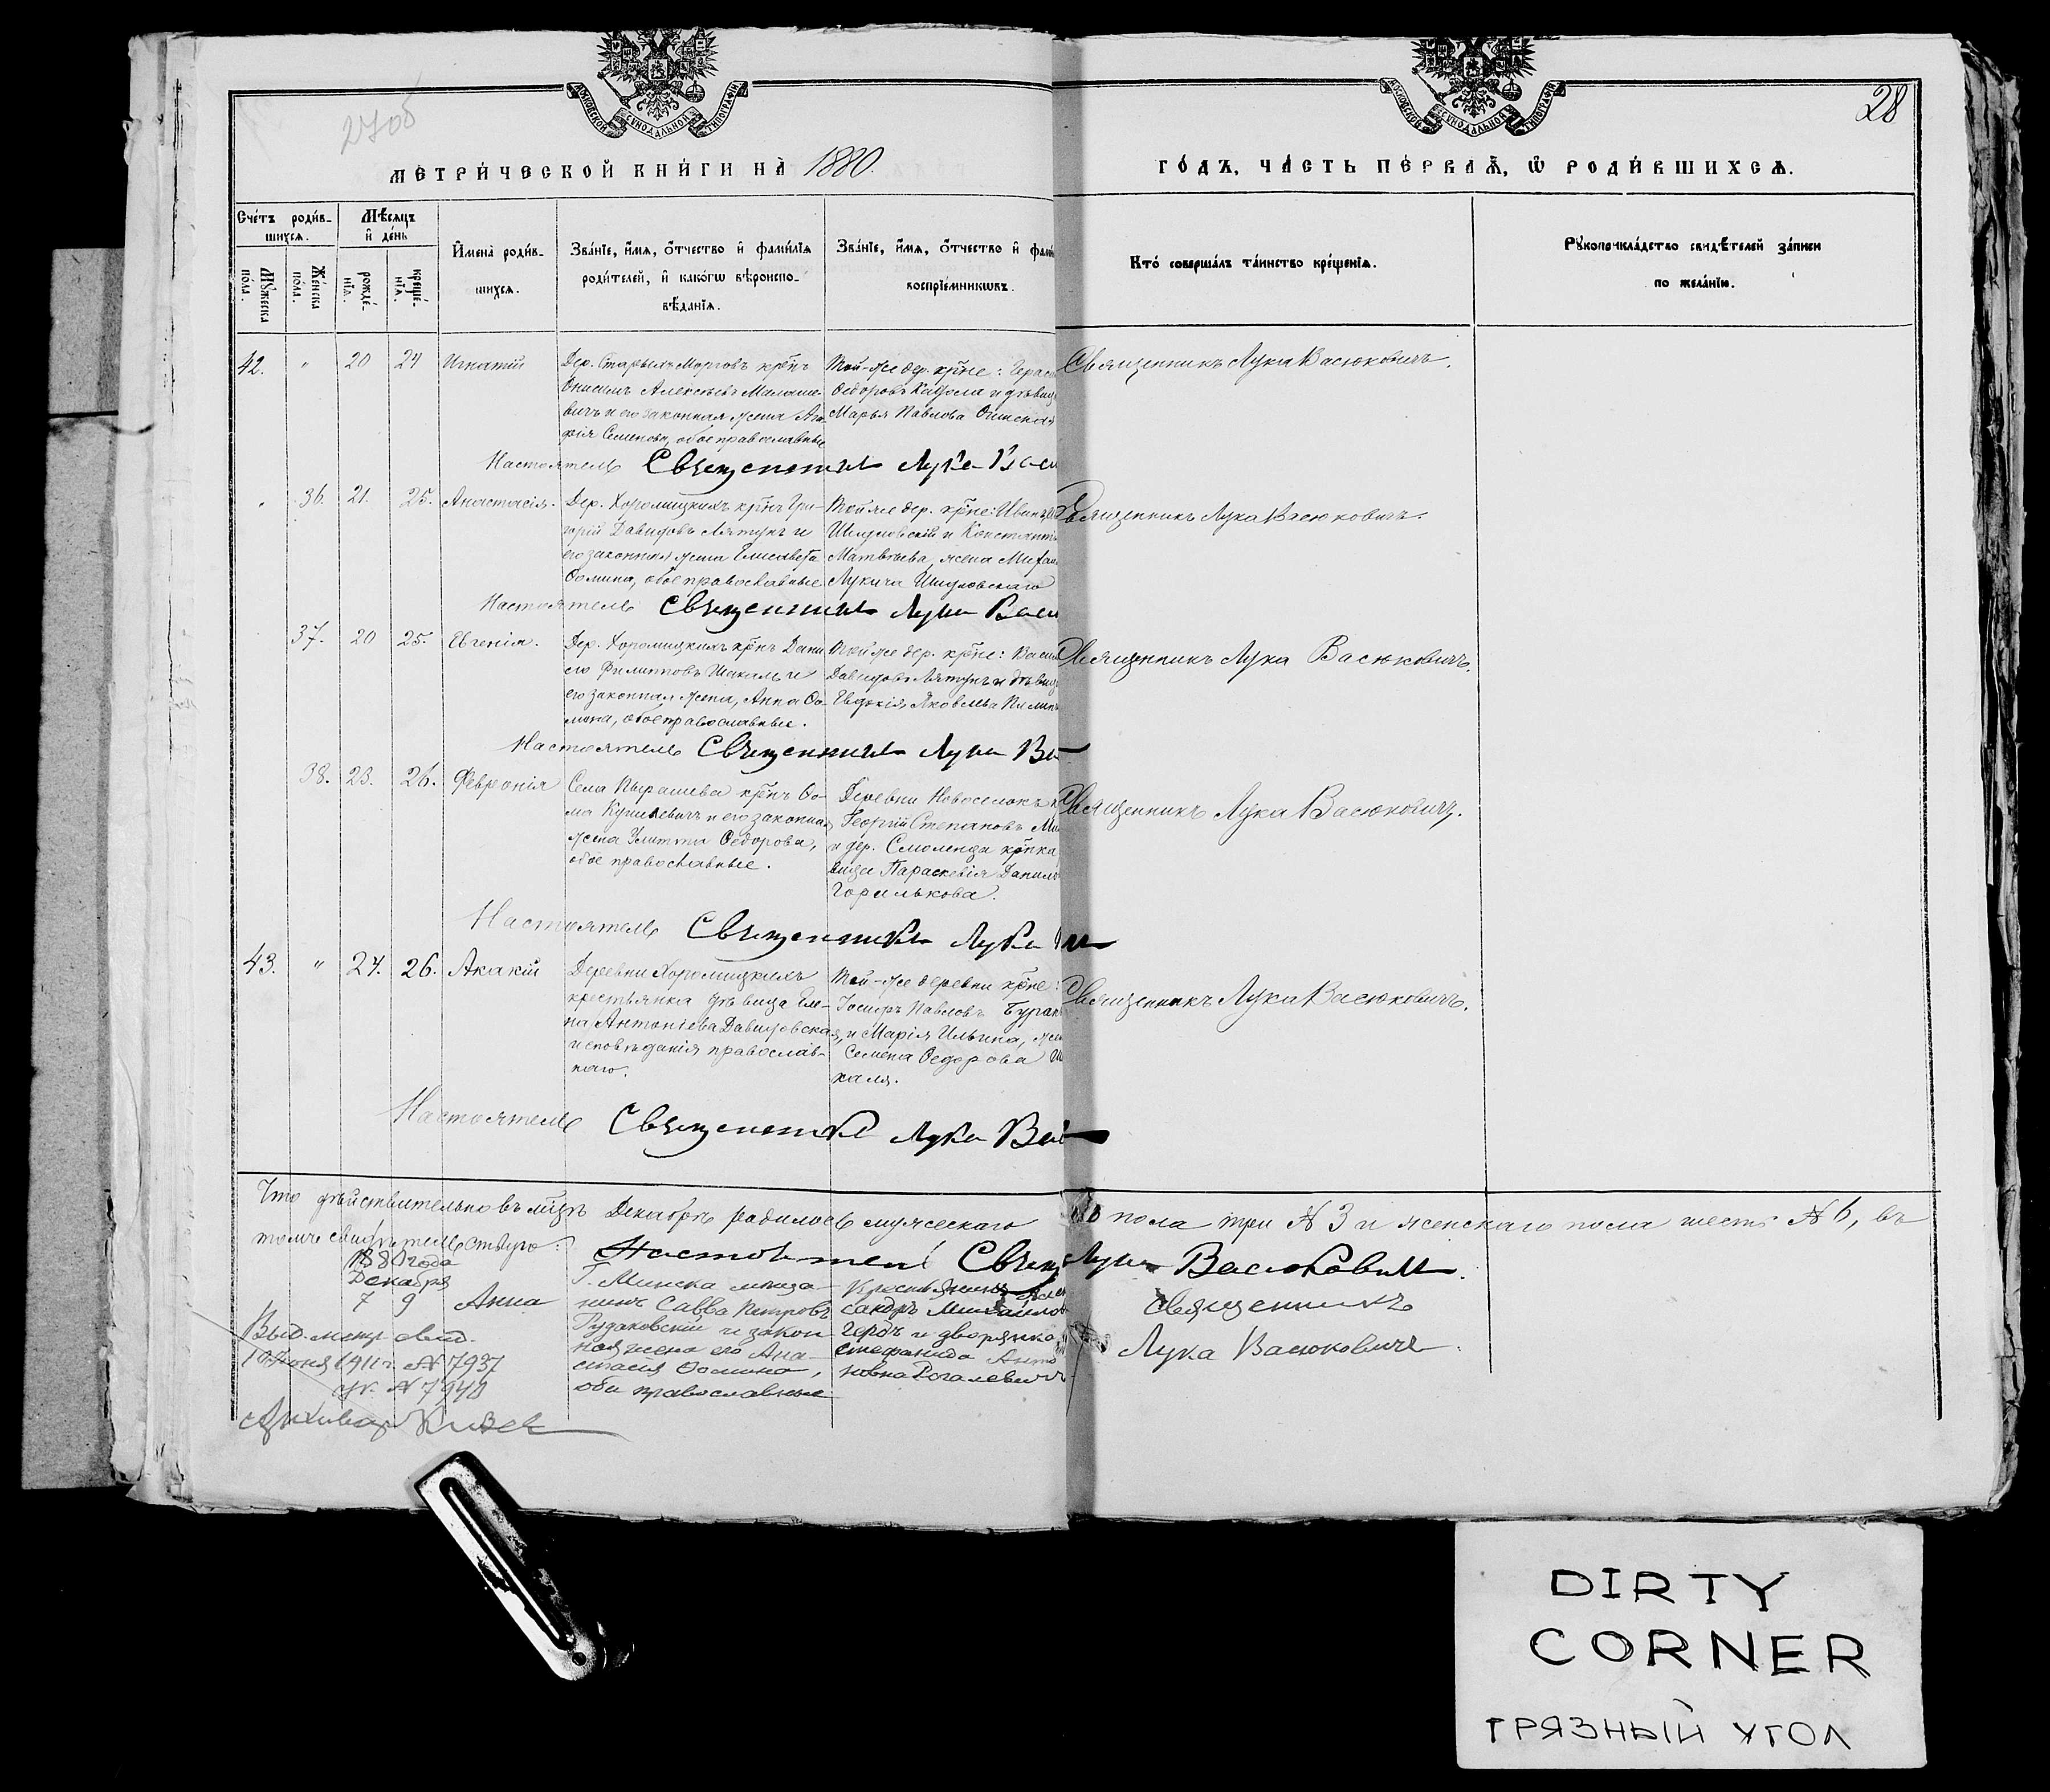 МОСКОВСКОЙ СѴНОДАЛЬНОЙ ТИПОГРАФІИ
МОСКОВСКОЙ СѴНОДАЛЬНОЙ ТИПОГРАФІИ
28
МЕТРИ́ЧЕСКОЙ КНИ́ГИ НА̀ 1880.
ГО́ДЪ, ЧА́СТЬ ПЕ́РВАѦ, Ѡ҆ РОДИ́ВШИХСѦ.
Сче́тъ роди́в-
шихсѧ.
Мѣ́сѧцъ
и҆ де́нь
Мꙋ́жеска
по́ла.
Же́нска
по́ла.
рожде́-
нїѧ.
креще́-
нїѧ.
И҆мена̀ роди́в-
шихсѧ.
Зва́нїе, и҆́мѧ, ѻ҆́тчество и҆ фами́лїѧ
роди́телей, и҆ како́гѡ вѣроиспо-
вѣ́данїѧ.
Зва́нїе, и҆́мѧ, ѻ҆́тчество и҆ фами
воспрїе́мникѡвъ.
Кто̀ соверша́лъ та́инство креще́нїѧ.
Рꙋкоприкла́дство свидѣ́телей за́писи
по жела́нїю.
42. " 20 24 Игнатій
Дер. Старыхъ Морговъ крꙵнъ
Онисимъ Алексѣевъ Малаше-
вичъ и его законная жена Ага-
фія Семенова, обое православные
Той-же дер. крꙵне: Герас
Ѳедоровъ и дѣвиц
Марья Павлова
Священникъ Лука Васюковичъ.
Настоятель Священникъ Лука Васю
" 36. 21. 25. Анастасія.
Дер. Хоромицкихъ крꙵнъ Гри-
горій Давидовъ Лятунъ и
его законная жена Елисавета
Ѳомина, обое православные
Той же дер. крꙵне: Иван
Шидловскій и Констант
Матвѣева, жена Михаи
Лукича Шидловскаго
Священникъ Лука Васюковичъ.
Настоятель Священникъ Лука Васю
37. 20 25. Евгенія.
Дер. Хоромицкихъ крꙵнъ Дани
ло Филиповъ Шакаль и
его законная жена, Анна Ѳо-
мина, обое православные.
Той же дер. крꙵне: Васил
Давидовъ Лятунъ и дѣвиц
Евдокія Яковлева
Священникъ Лука Васюковичъ.
Настоятель Священникъ Лука Ва
38. 23. 26. Февронія
Села Пырашева крꙵнъ Ѳо-
ма и его законная
жена Улитта Ѳедорова,
обое православные.
Деревни Новоселокъ к
Георгій Степановъ Ми
и дер. Смоленца крꙵнка
вица Параскевія Данил
Горилькова.
Священникъ Лука Васюковичъ.
Настоятель Священникъ Лука
43. " 24. 26. Акакій
Деревни Хоромицкихъ
крестьянка дѣвица Еле-
на Антоніева Давидовская
исповѣданія православ-
наго.
Той-же деревни крꙵне:
Іосифъ Павловъ Буран
и Марія Ильина, жен
Семена Ѳедорова Ш
каля.
Священникъ Лука Васюковичъ.
Настоятель Священникъ Лука Ва
Что дѣйствительно въ мцѣ Декабрѣ родилось мужескаго
пола три № 3 и женскаго пола шесть № 6, въ
томъ свидѣтельствую:
Настоятель Свящ Лука Васюковичъ.
1880 года
Декабря
7 9 Анна
Г. Минска мѣща-
нинъ Савва Петровъ
Рудаковскій и закон
ная жена его Ана-
стасія Ѳомина,
оба православные
Крестьянинъ Алек
сандръ Михайлов
Гердъ и дворянка
Стефанида Анто
новна Рогалевичъ
Священникъ
Лука Васюковичъ.
Выд. метр. свид.
10 Іюня 1911 г. № 7937
№ 7940
Архиваръ
DIRTY
CORNER
ГРЯЗНЫЙ УГОЛ